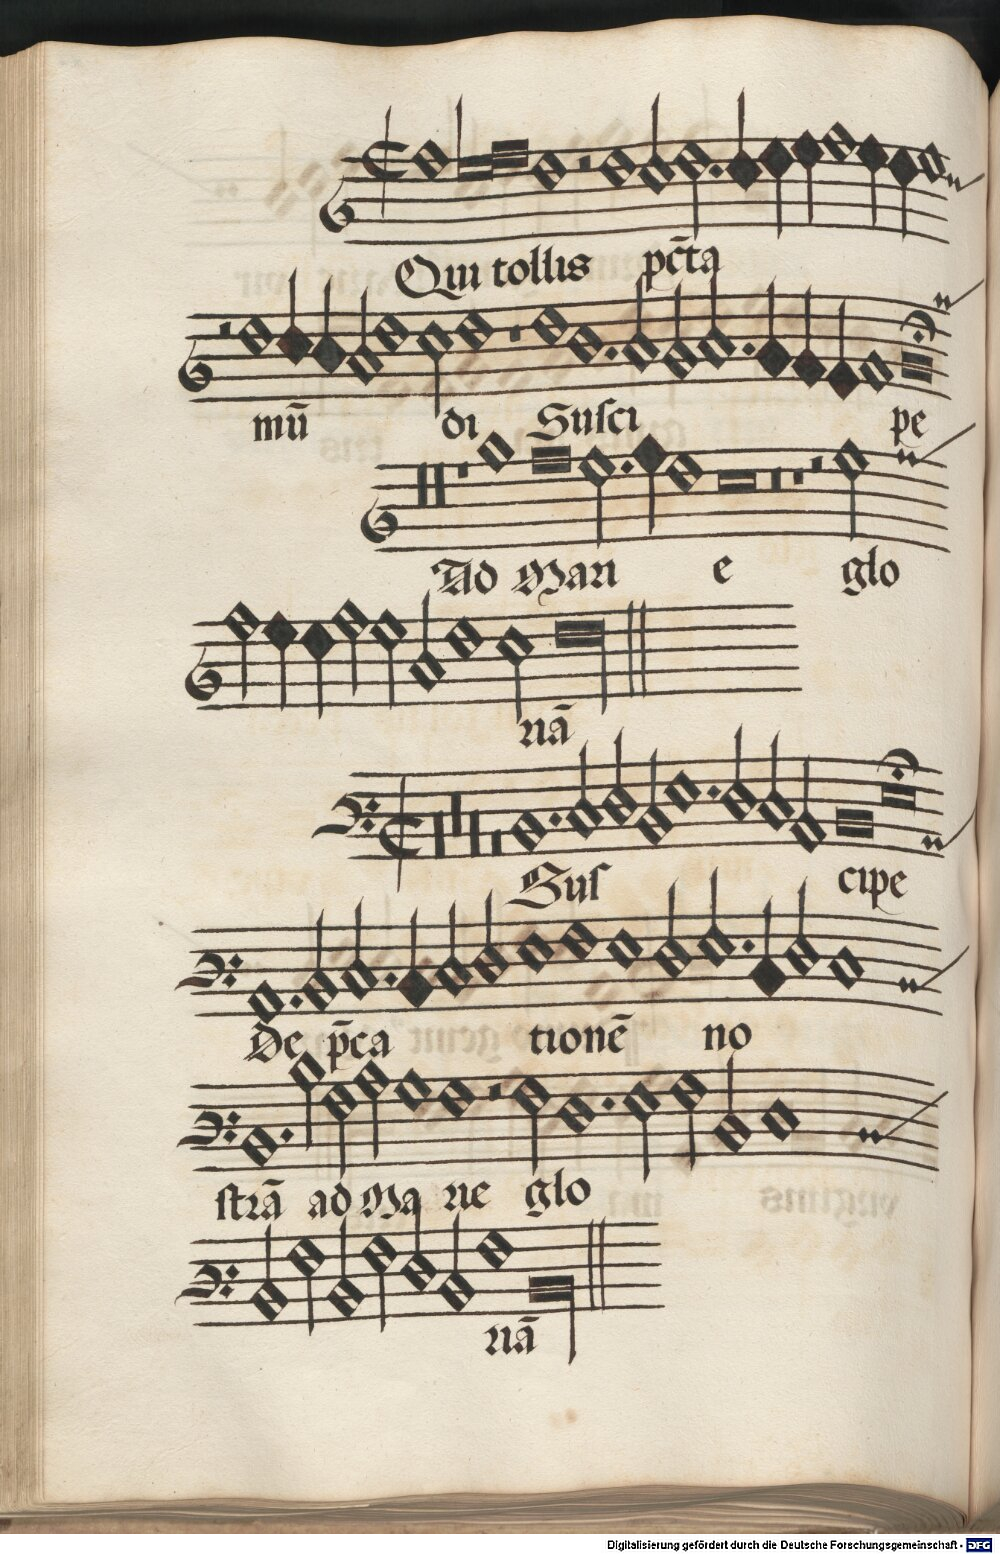 Qui tollis pc̄ta
mū di Suſci pe
Ad Mari e glo
riā
Suſ cipe
De p̄ca tionē no
ſtrā ad Ma rie glo
riā
Digitalisierung gefördert durch die Deutsche Forschungsgemeinschaft - DFG